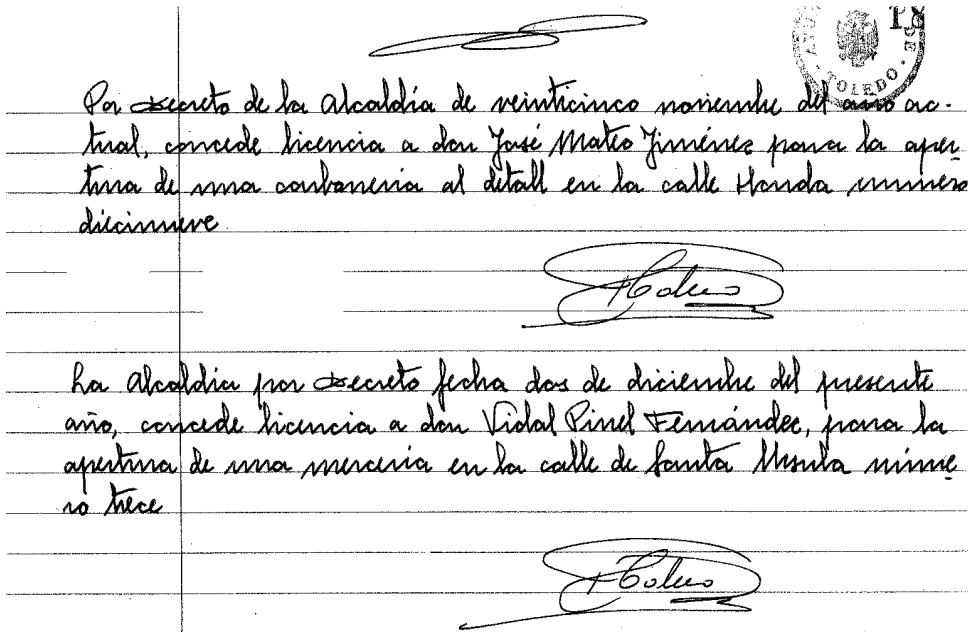 18
TOLEDO
Por decreto de la Alcaldía de veinticinco noviembre del año ac-
tual, concede licencia a don José Mateo Jiménez para la aper
tura de una carbonería al detall en la calle Honda número
diecinueve
La Alcaldía por decreto fecha dos de diciembre del presente
año, concede licencia a don Vidal Pinel Fernández, para la
apertura de una mercería en la calle de Santa Ursula núme
ro trece